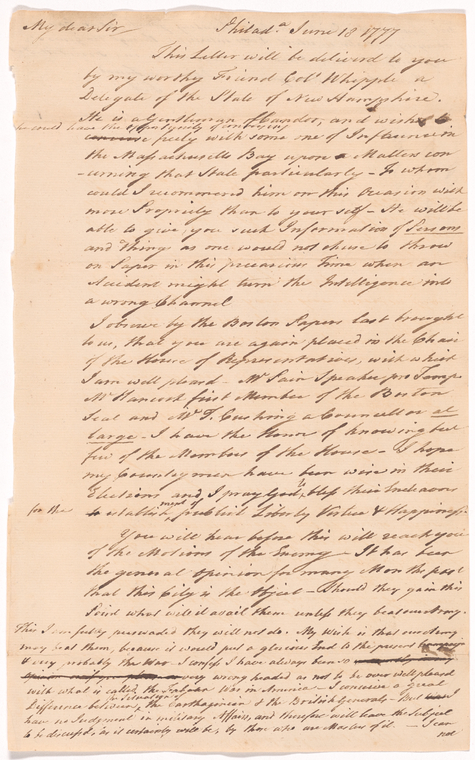 My dear Sir Philada June 18 1777
This Letter will be deliverd to you
by my worthy Friend Colo Whipple a
Delegate of the State of New Hampshire.
He is a Gentleman of Candor, and wishes
he could have the opportunity of conversing
freely with some one of Influence in
the Massachusetts Bay upon Matters con
-cerning that State particularly - to whom
could I recommend him on this Occasion with
more Propriety than to your self - He will be
able to give you such Information of Persons
and Things as one would not chuse to throw
on Paper in this precarious Time when an
Accident might turn the Intelligence into
a wrong Channel
I observe by the Boston Papers last brought
to us, that you are again placed in the Chair
of the House of Representatives, with which
I am well pleasd - Mr Pain Speaker pro Temp
Mr Hancock first Member of the Boston
Seat and Mr T. Cushing a Councellor at
large - I have the Honor of knowing but
few of the Members of the House - I hope
my Countrymen have been wise in their
Elections and I pray God to bless their Endeavors
for the establishment of publick Liberty Virtue & Happiness.
You will hear before this will reach you
of the Motions of the Enemy - It has been
the general opinion for many Months past
that this City is the Object - Should they gain this
Point what will it avail them unless they beat our Army.
This I am fully perswaded they will not do. My Wish is that our Army
may beat them, because it would put a glorious End to the present
& very probably the War. I confess I have always been so
very wrong headed as not to be over well pleased
with what is called the Fabian War in America. I conceive a great
Difference between the Carthaginian & the British Generals - But I
have no Judgment in military Affairs, and therefore will leave the Subject
to be discussd, as it certainly will be, by those who are Masters of it. - I can
not